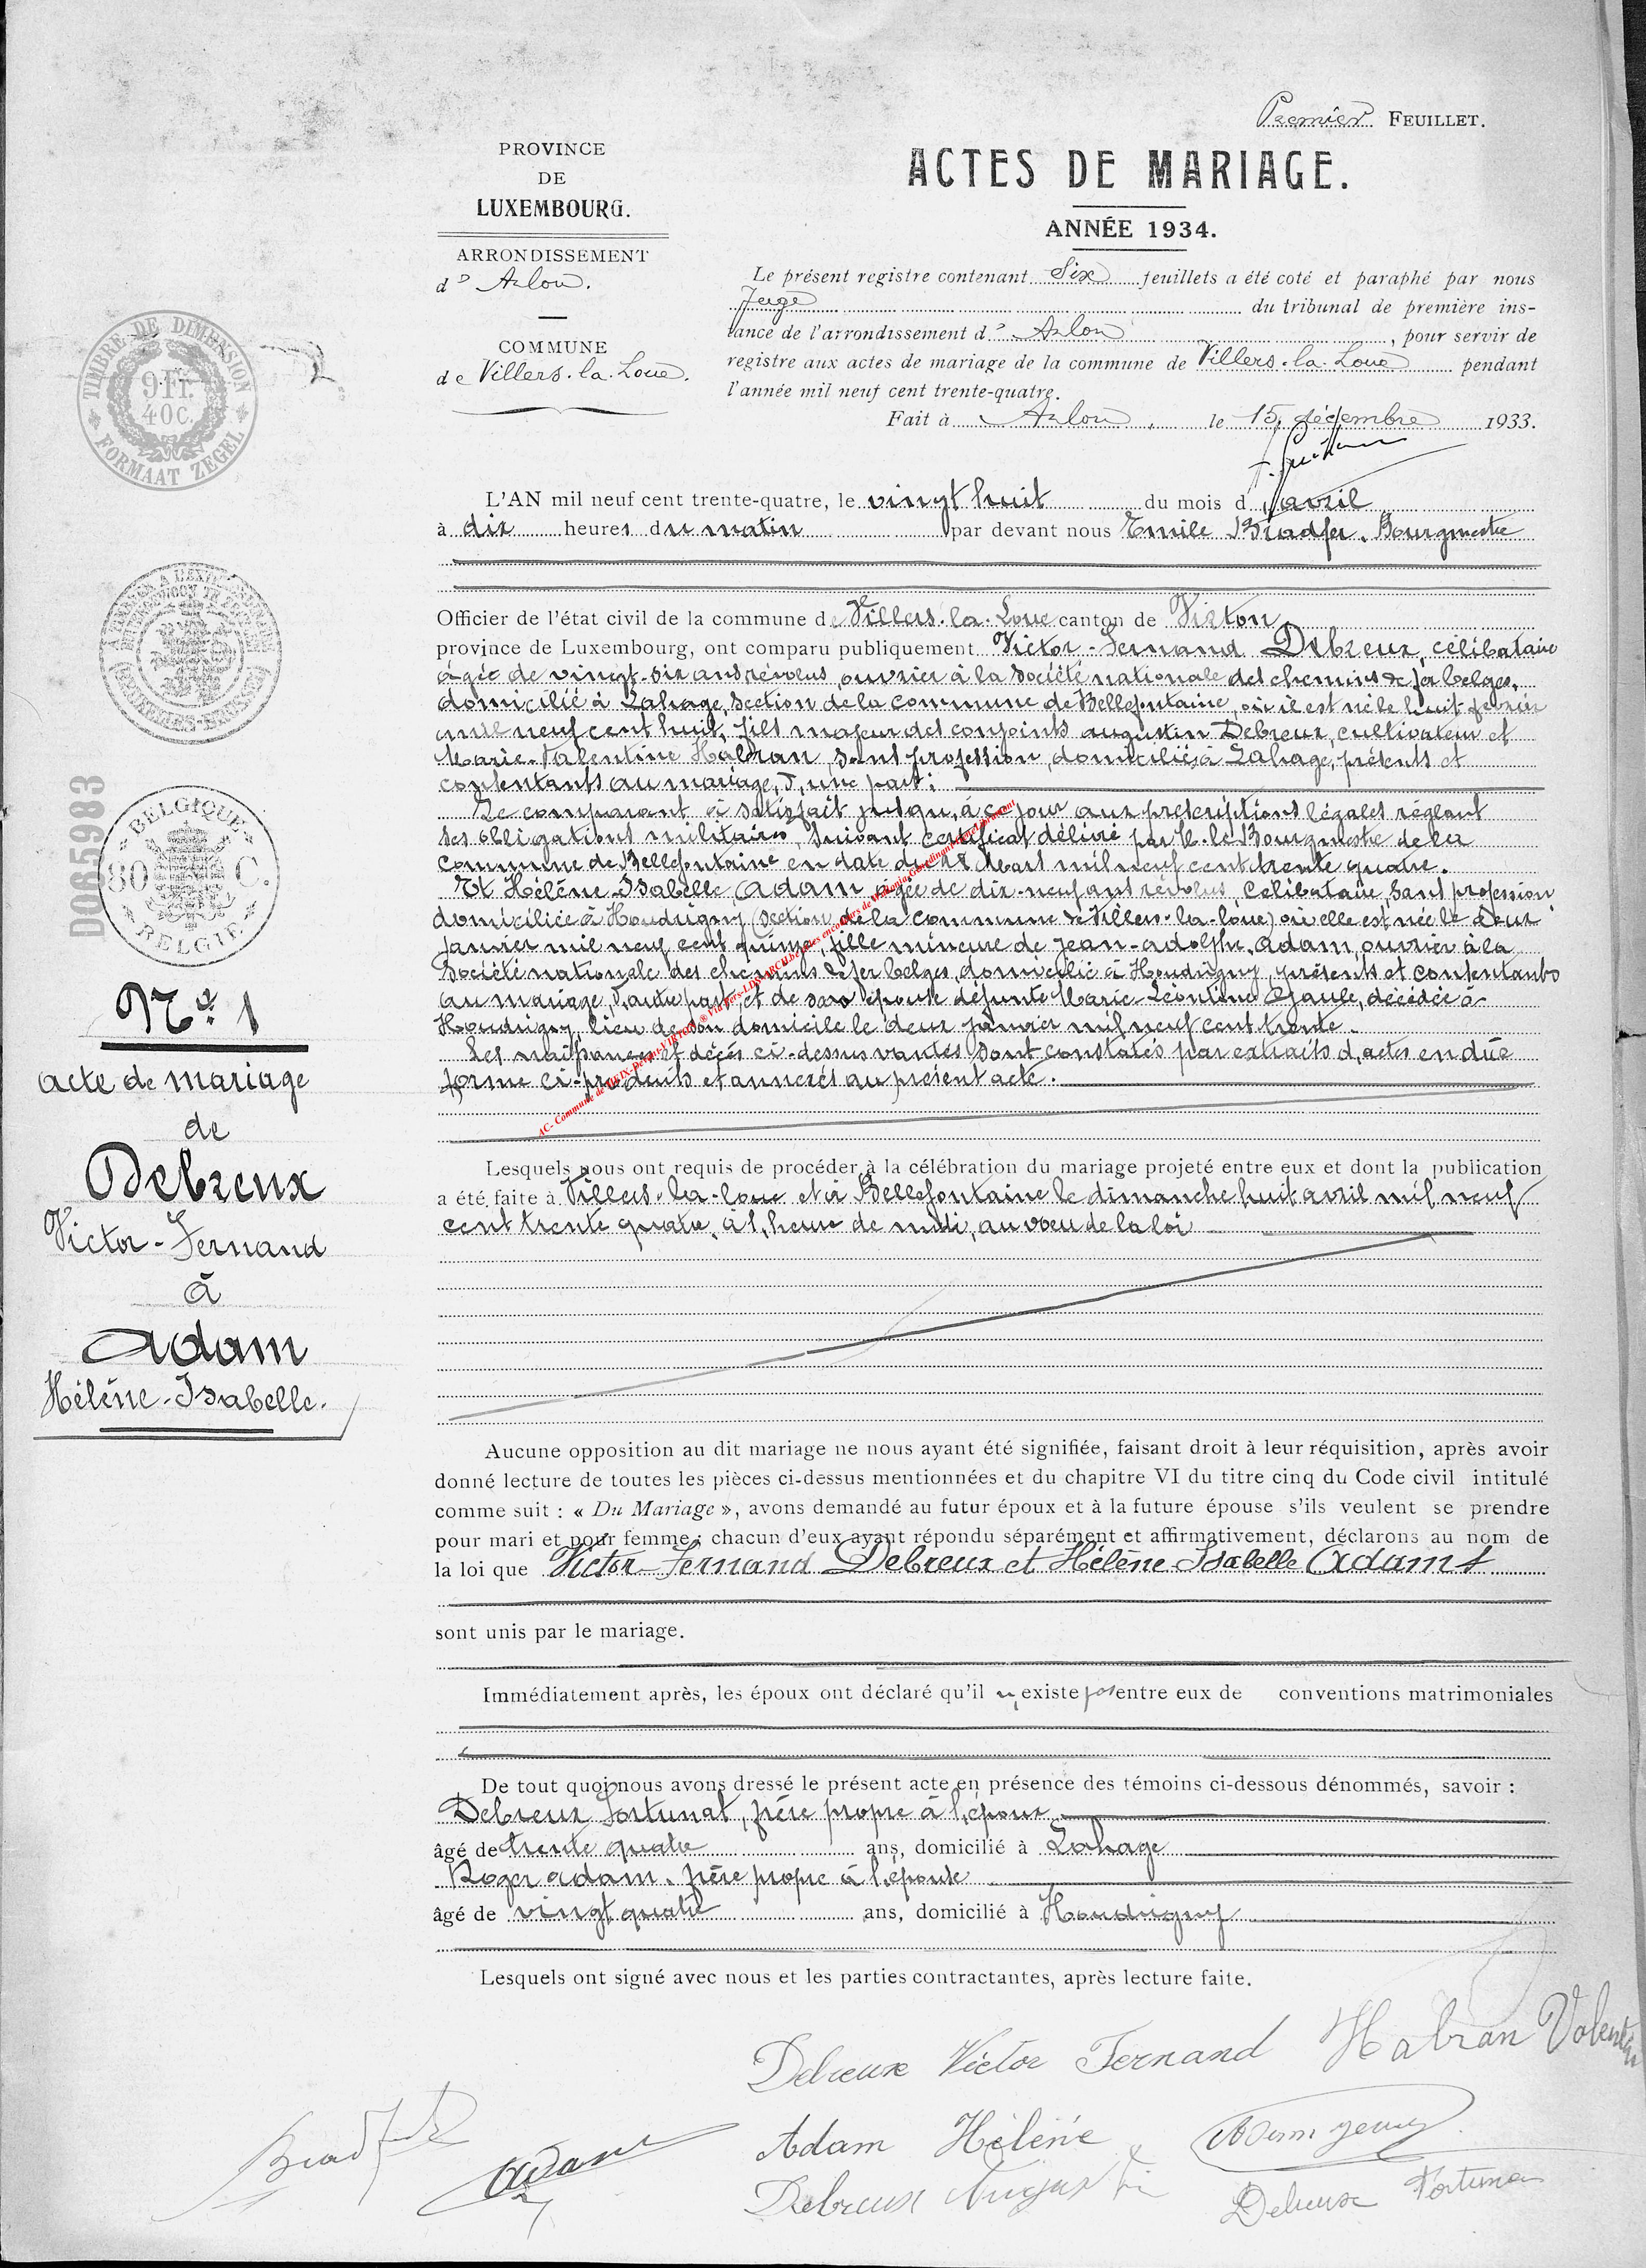 Premier FEUILLET.
PROVINCE
DE
LUXEMBOURG.
ARRONDISSEMENT
d' Arlon.
COMMUNE
de Villers-la-Loue.
ACTES DE MARIAGE.
ANNÉE 1934.
Le présent registre contenant Six feuillets a été coté et paraphé par nous
Juge du tribunal de première ins-
tance de l'arrondissement d' Arlon, pour servir de
registre aux actes de mariage de la commune de Villers-la-Loue pendant
l'année mil neuf cent trente-quatre.
Fait à Arlon, le 15 décembre 1933.
TIMBRE DE DIMENSION
9Fr.
40C.
FORMAAT ZEGEL
L'AN mil neuf cent trente-quatre, le vingt huit du mois d'avril
à dix heures du matin par devant nous Emile Bradfer, Bourgmestre
Officier de l'état civil de la commune de Villers-la-Loue canton de Virton,
province de Luxembourg, ont comparu publiquement Victor-Fernand Debreux, célibataire
âgé de vingt-six ans révolus, ouvrier à la Société nationale des chemins de fer belges,
domicilié à Lahage, section de la commune de Bellefontaine, où il est né le huit février
mil neuf cent huit, fils majeur des conjoints Augustin Debreux, cultivateur et
Marie-Valentine Habran, sans profession, domiciliés à Lahage, présents et
consentants au mariage, d'une part;
Le comparant a satisfait jusqu'à ce jour aux prescriptions légales réglant
ses obligations militaires, suivant certificat délivré par M. le Bourgmestre de la
commune de Bellefontaine en date du Mars mil neuf cent trente quatre.
Et Hélène-Isabelle Adam, âgée de dix-neuf ans révolus, célibataire, sans profession
domiciliée à Houdrigny (section de la commune de Villers-la-loue) où elle est née le deux
Janvier mil neuf cent quinze, fille mineure de Jean-Adolphe Adam, ouvrier à la
Société nationale des chemins de fer belges, domicilié à Houdrigny, présents et consentants
au mariage, d'autre part, et de son épouse défunte Marie-Léontine, décédée à
Houdrigny, lieu de son domicile le deux janvier mil neuf cent trente.
Les naissances et décès ci-dessus vantés sont constatés par extraits d'actes en due
forme ci-produits et annexés au présent acte.
D065983
BELGIQUE
80 C.
BELGIE
N° 1
Acte de mariage
de
Debreux
Victor-Fernand
à
Adam
Hélène-Isabelle.
Lesquels nous ont requis de procéder à la célébration du mariage projeté entre eux et dont la publication
a été faite à Villers-la-loue et à Bellefontaine le dimanche huit avril mil neuf
cent trente quatre, à l'heure de midi, au vœu de la loi
Aucune opposition au dit mariage ne nous ayant été signifiée, faisant droit à leur réquisition, après avoir
donné lecture de toutes les pièces ci-dessus mentionnées et du chapitre VI du titre cinq du Code civil intitulé
comme suit : « Du Mariage », avons demandé au futur époux et à la future épouse s'ils veulent se prendre
pour mari et pour femme; chacun d'eux ayant répondu séparément et affirmativement, déclarons au nom de
la loi que Victor-Fernand Debreux et Hélène-Isabelle Adam
sont unis par le mariage.
Immédiatement après, les époux ont déclaré qu'il n'existe pas entre eux de conventions matrimoniales
De tout quoi nous avons dressé le présent acte en présence des témoins ci-dessous dénommés, savoir :
Debreux Fortunat, frère propre à l'époux
âgé de trente quatre ans, domicilié à Lahage
Roger Adam, frère propre à l'épouse
âgé de vingt quatre ans, domicilié à Houdrigny
Lesquels ont signé avec nous et les parties contractantes, après lecture faite.
Debreux Victor Fernand Habran Valentine
Bradfer Adam Adam Hélène Adam
Debreux Augustin Debreux Fortunat